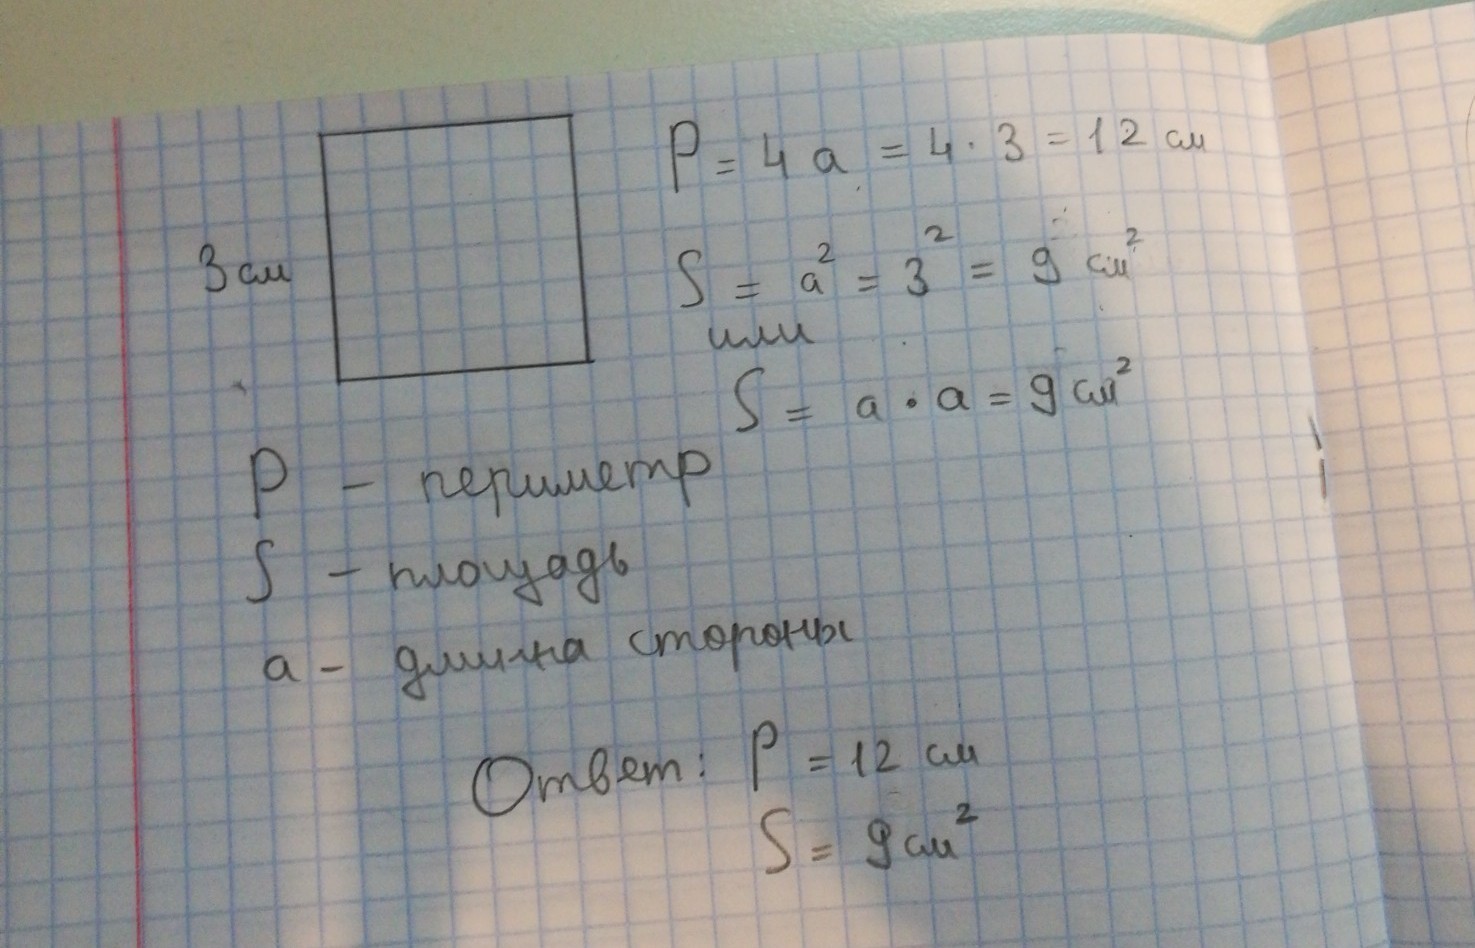 3 см
P = 4 a = 4 · 3 = 12 см
S = a² = 3² = 9 см²
или
S = a · a = 9 см²
P – периметр
S – площадь
a – длинна стороны
Ответ: P = 12 см
S = 9 см²